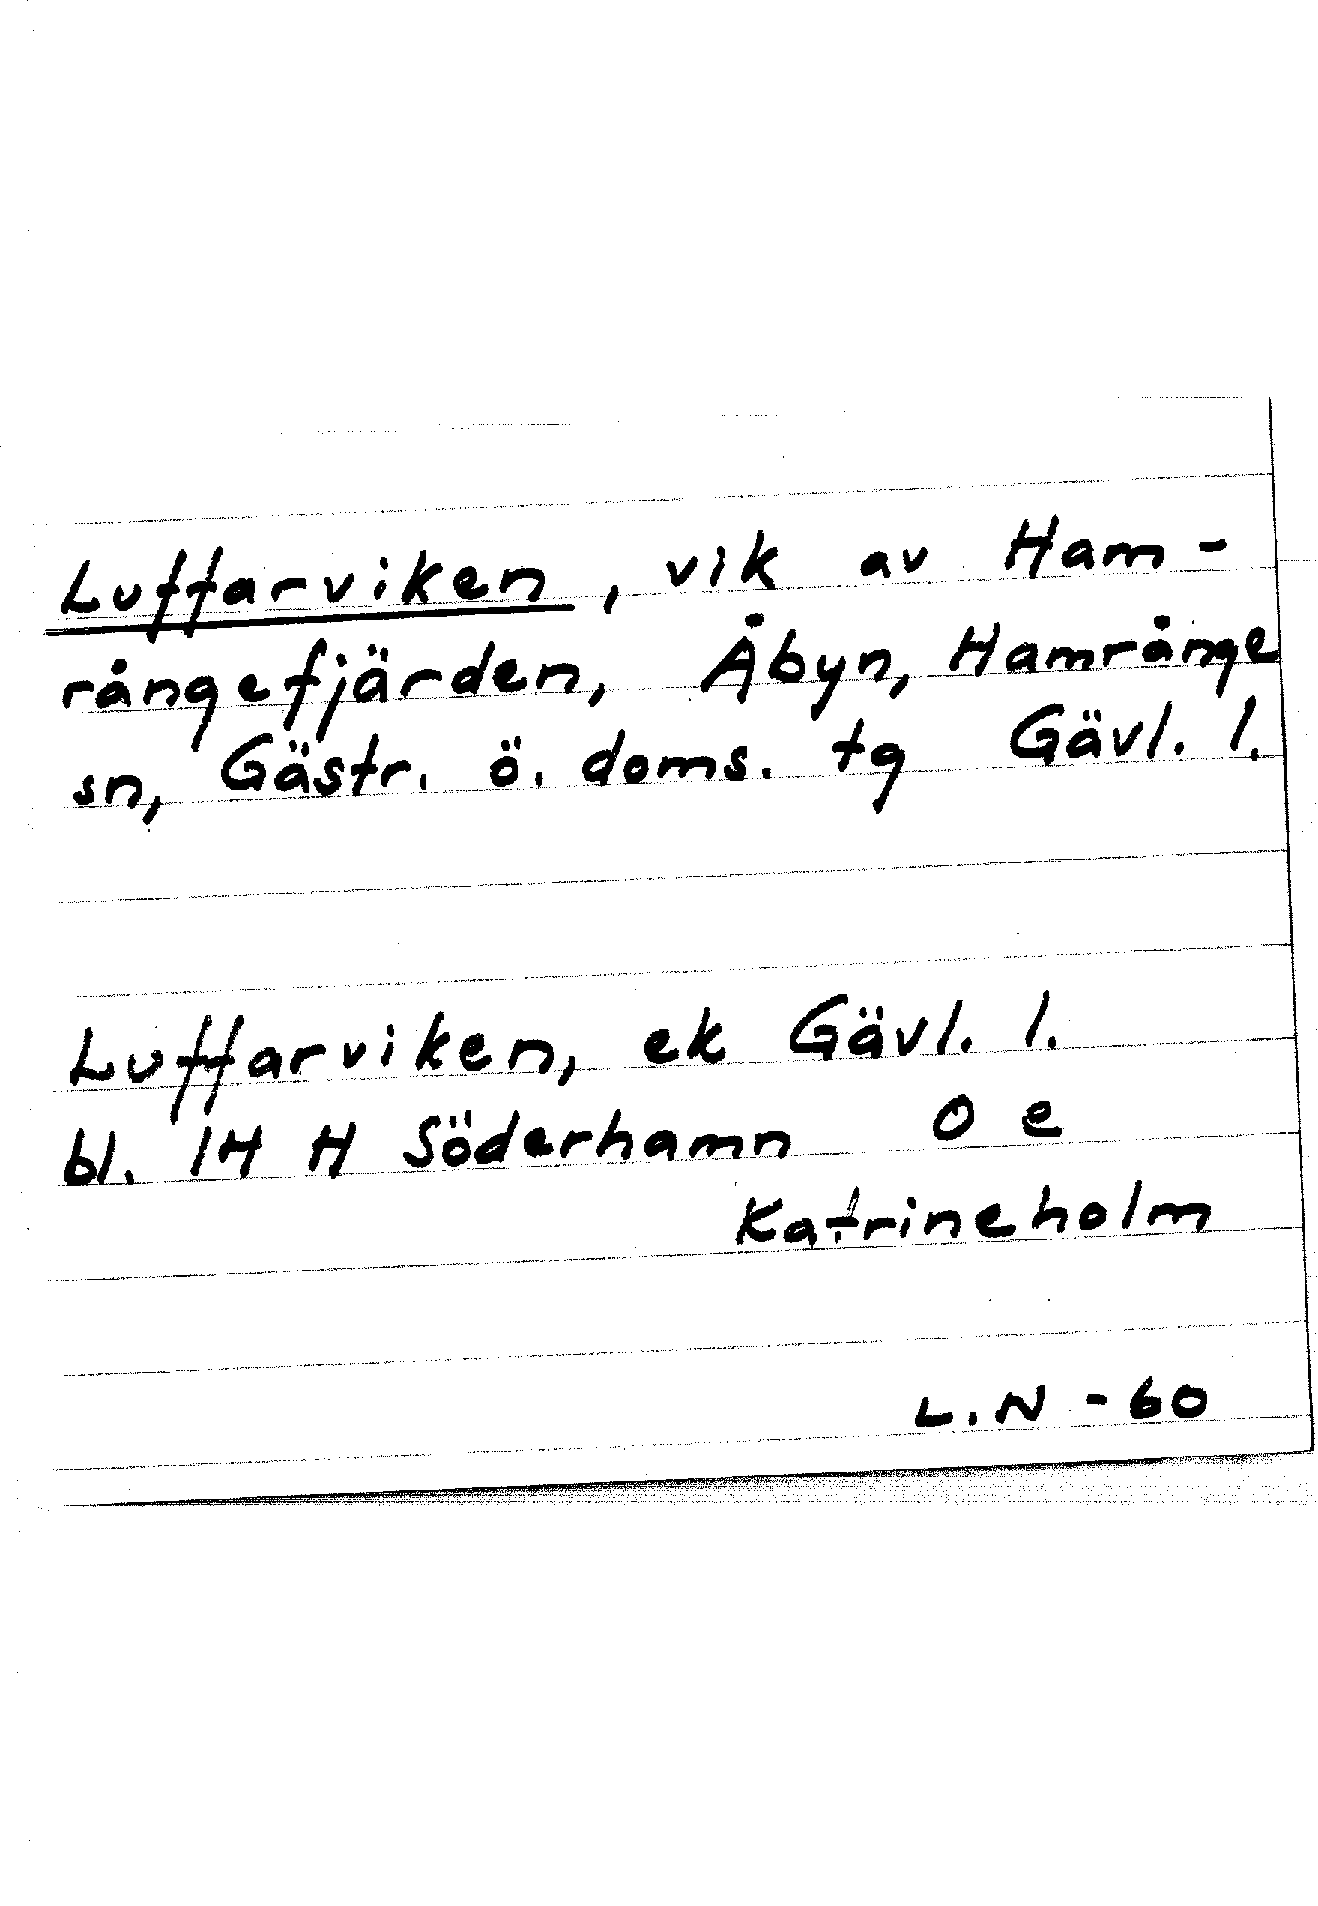 Luffarviken, vik av Ham-
rångefjärden, Åbyn, Hamrånge
sn, Gästr. ö. doms. tg Gävl. l.
Luffarviken, ek Gävl. l.
bl. 14 H Söderhamn O e
Katrineholm
L.N - 60